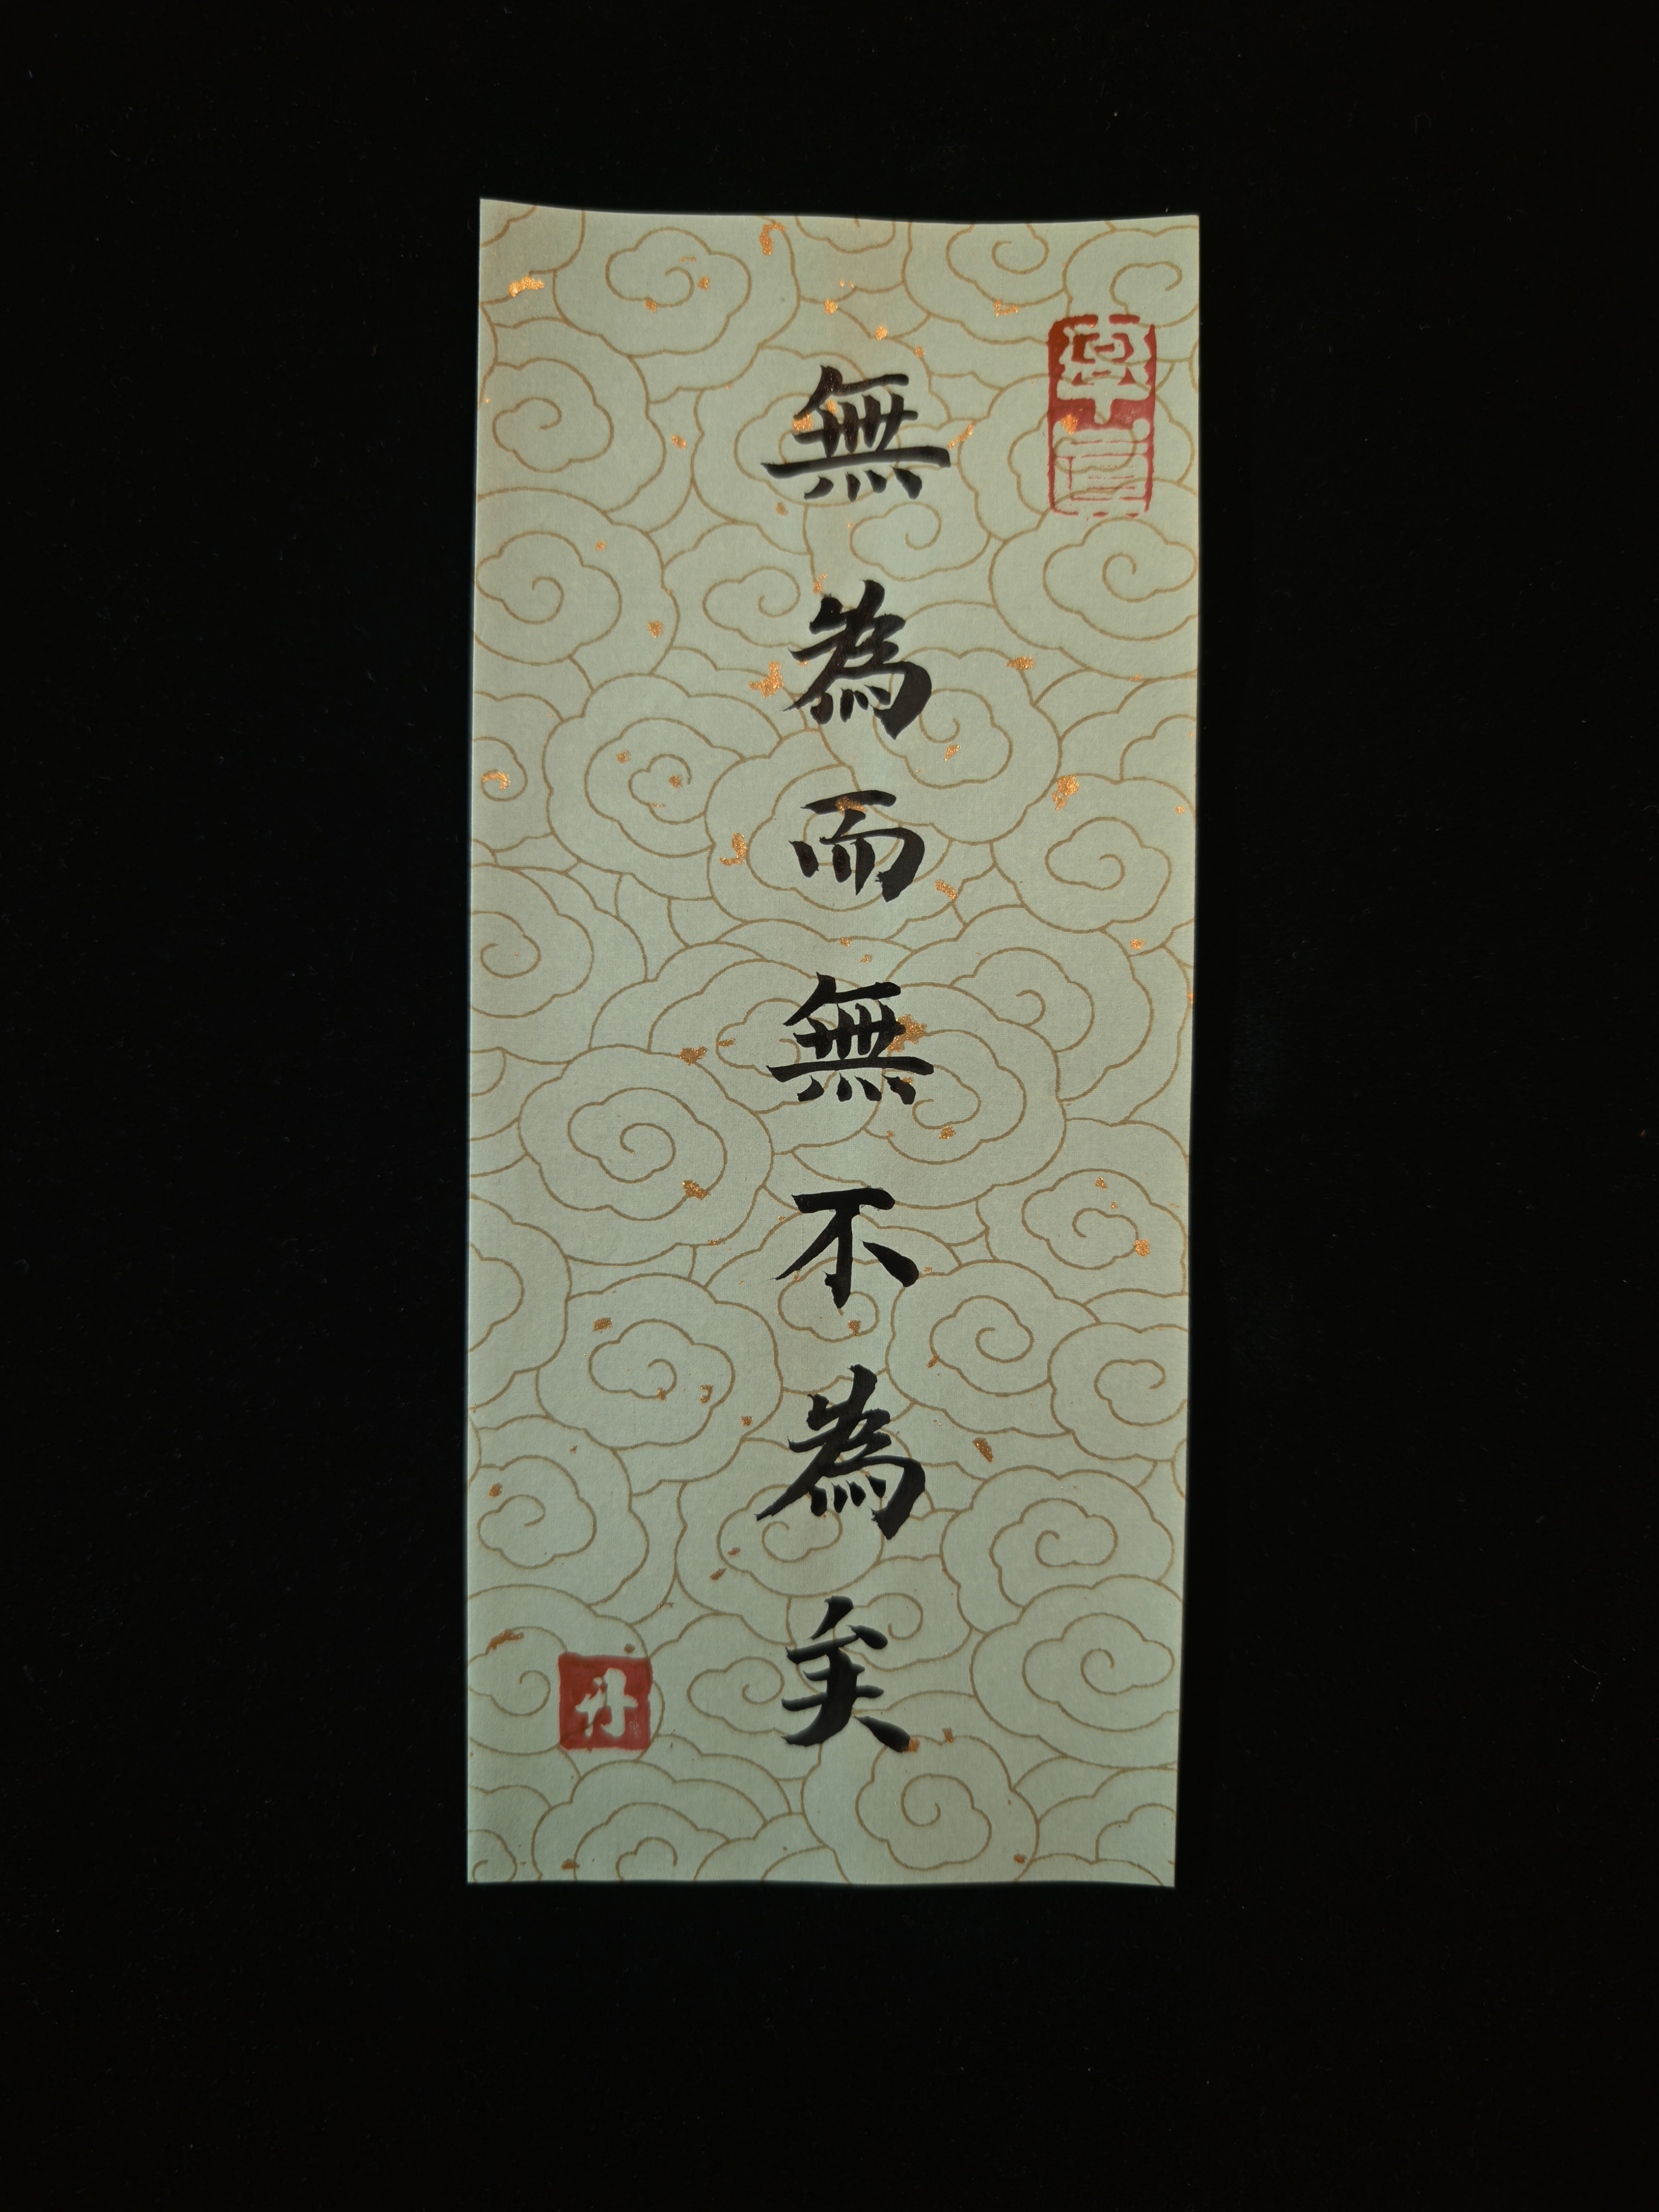 無為而無不為矣
丹